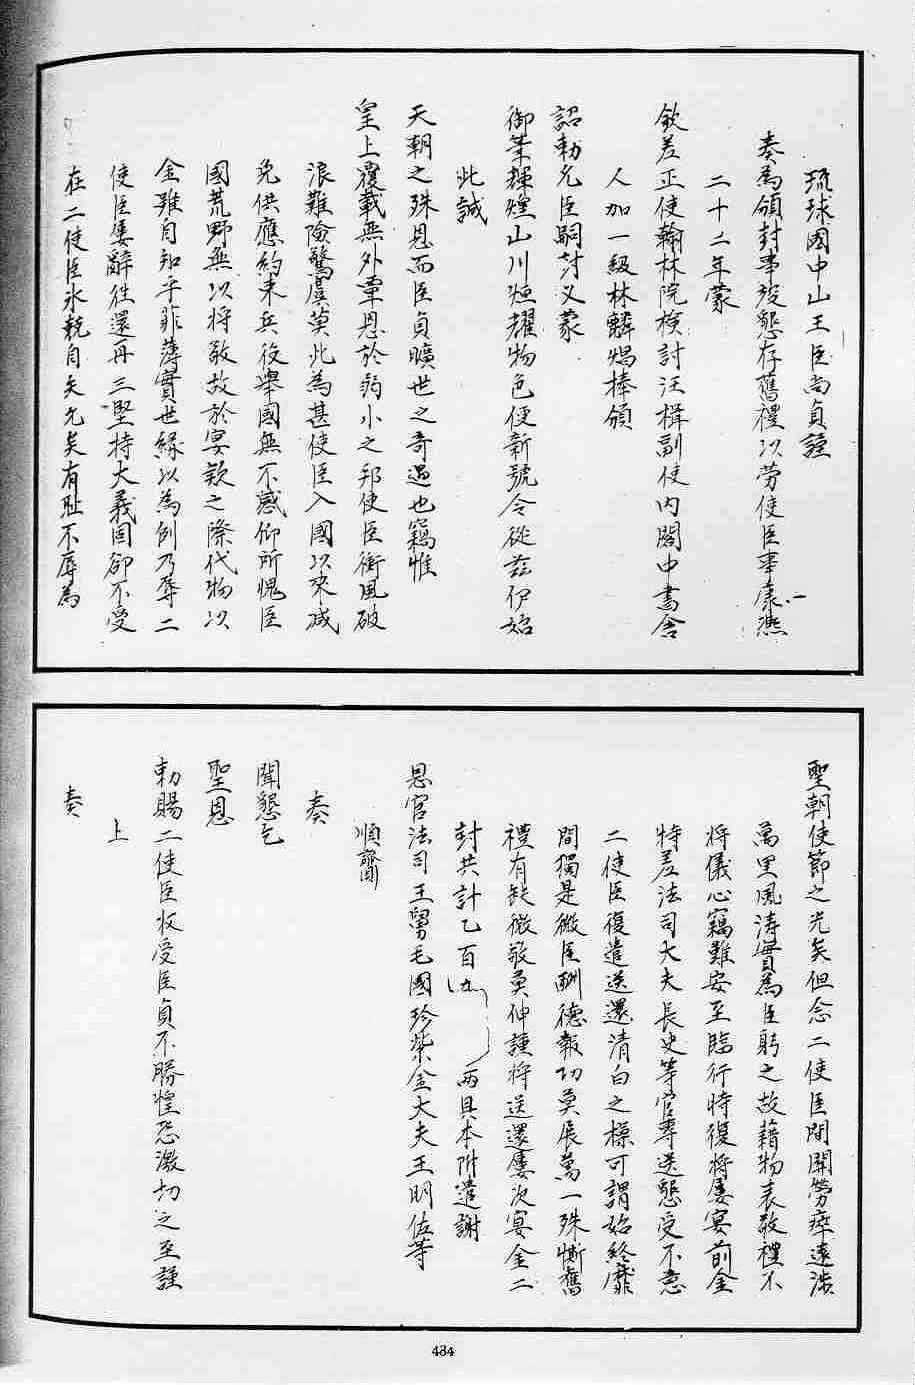 琉球國中山王臣尚貞謹
奏為頒封事竣懇存舊禮以勞使臣事康熙
二十二年蒙
欽差正使翰林院檢討汪楫副使內閣中書舍
人加一級林麟焻捧頒
詔勅允臣嗣封又蒙
御筆輝煌山川烜耀物色便新號令從茲伊始
此誠
天朝之殊恩而臣貞曠世之奇遇也竊惟
皇上覆載無外覃恩於弱小之邦使臣衝風破
浪難險驚虞莫此為甚使臣入國以來減
免供應約束兵役舉國無不感仰所愧臣
國荒野無以將敬故於宴款之際代物以
金雖自知乎菲薄實世緣以為例乃辱二
使臣屢辭往還再三堅持大義固卻不受
在二使臣氷兢自矢允矣有恥不辱為
聖朝使節之光矣但念二使臣間關勞瘁遠涉
萬里風濤實為臣躬之故藉物表敬禮不
將儀心竊難安至臨行時復將屢宴前金
特差法司大夫長史等官專送懇受不意
二使臣復遣送還清白之操可謂始終靡
間獨是微臣酬德報功莫展萬一殊慚舊
禮有缺微敬莫伸謹將送還屢次宴金二
封共計乙百九 兩具本附遣謝
恩官法司王舅毛國珍紫金大夫王明佐等
順齎
奏
聞懇乞
聖恩
勅賜二使臣收受臣貞不勝惶恐激切之至謹
上
奏
484